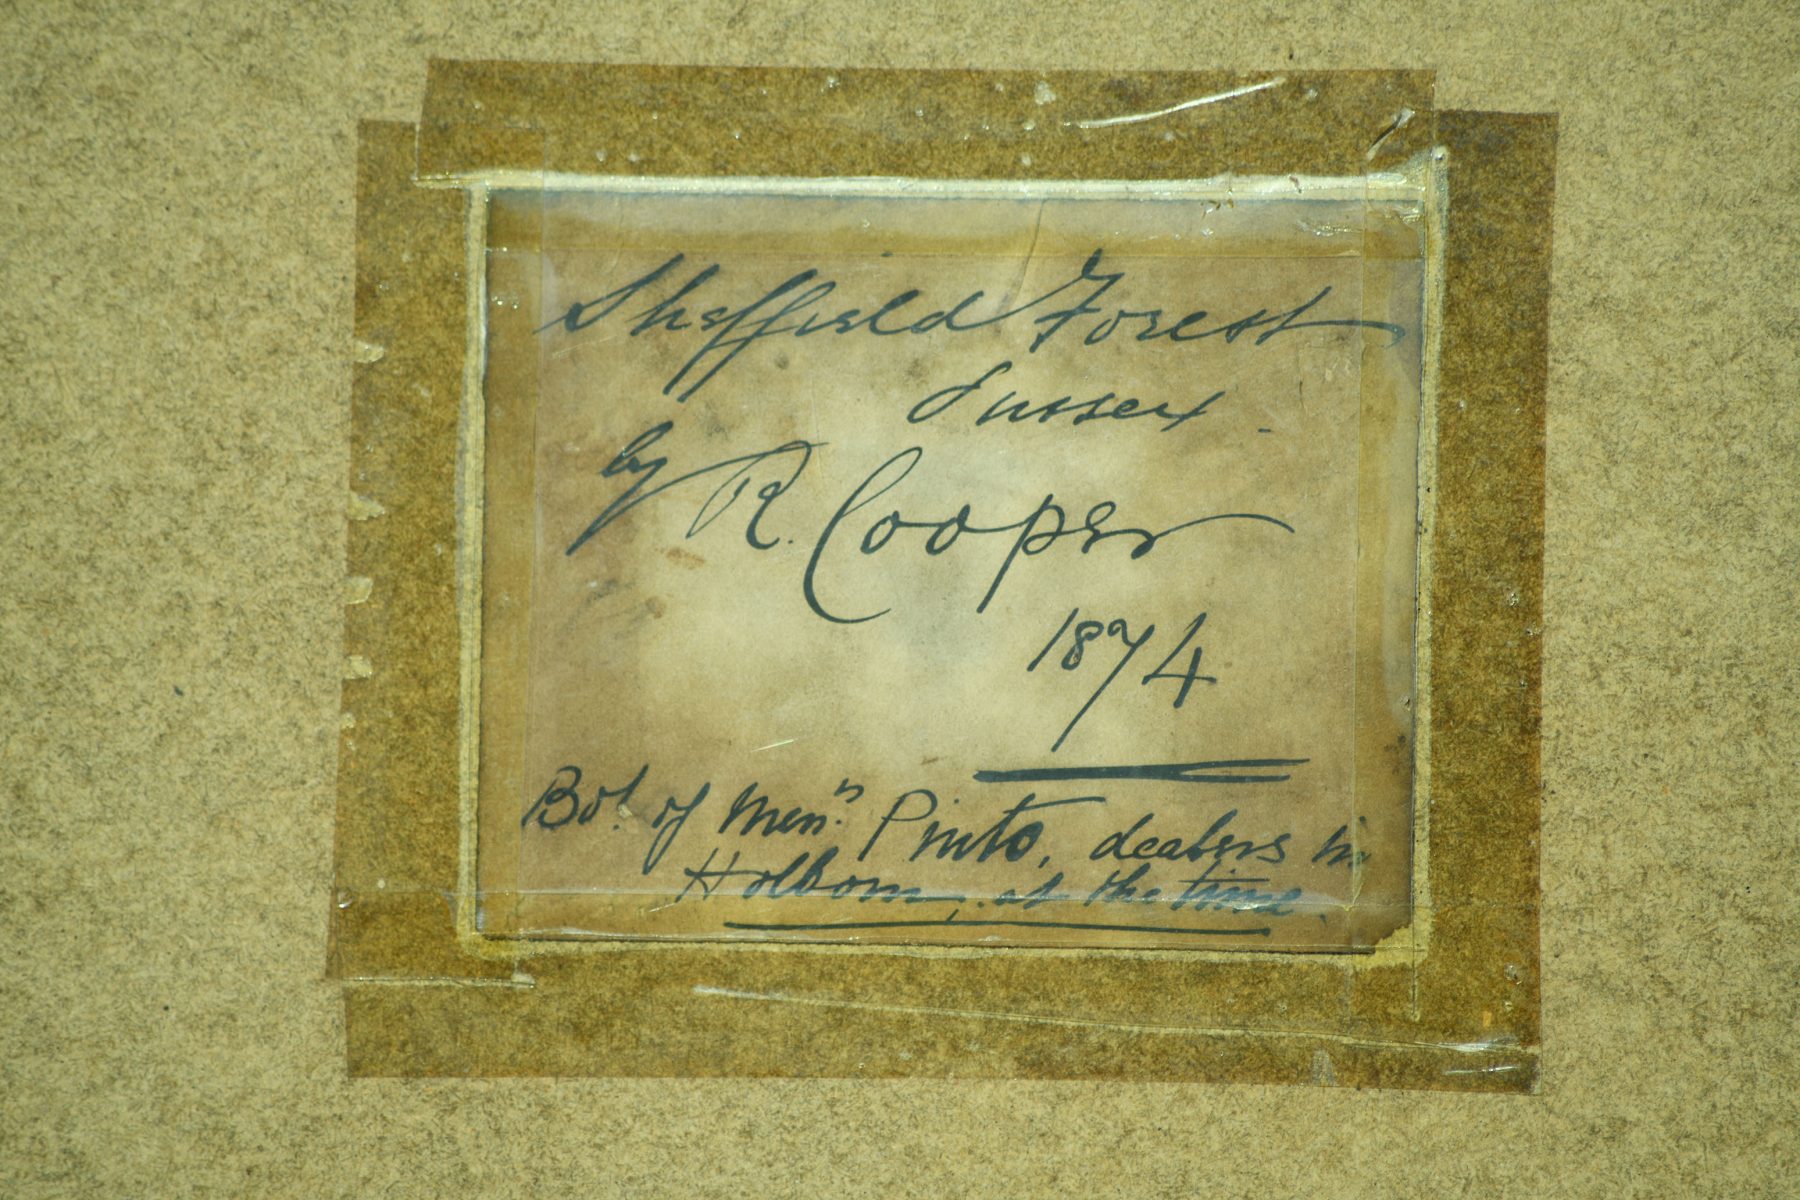 Sheffield Forest
Sussex.
by R. Cooper
1874
Bot. of Messrs. Pinto, dealers in
Holborn, at the time.